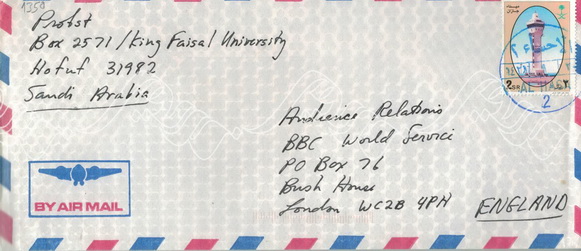 1350
Probst
Box 2571/King Faisal University
Hofuf 31982
Saudi Arabia
2
Audience Relations
BBC World Servici
PO Box 76
Bush House
London WC2B 4PH
ENGLAND
BY AIR MAIL